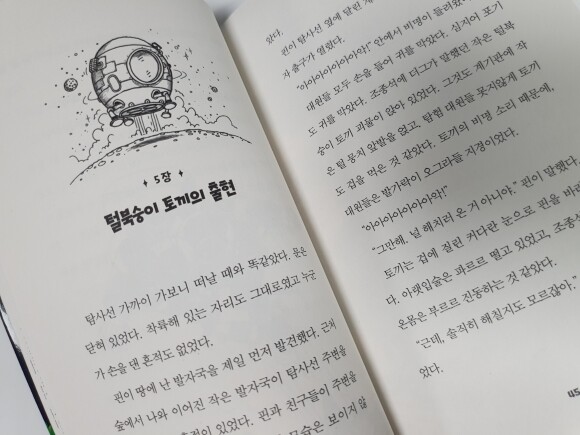 5장
털북숭이 토끼의 출현
탐사선 가까이 가보니 떠날 때와 똑같았다. 문은
닫혀 있었다. 착륙해 있는 자리도 그대로였고 누군
가 손을 댄 흔적도 없었다.
핀이 땅에 난 발자국을 제일 먼저 발견했다. 근처
숲에서 나와 이어진 작은 발자국이 탐사선 주변을
흔적이 있었다. 핀과 친구들이 주변을
모습은 보이지 않
았다.
핀이 탐사선 옆에 달린
자 출구가 열렸다.
“아아아아아아악!” 안에서 비명이 들려왔
대원들 모두 손을 들어 귀를 막았다. 심지어 포기
도 귀를 막았다. 조종석에 더그가 말했던 작은 털북
숭이 토끼 괴물이 앉아 있었다. 그것도 계기판에 작
은 털 뭉치 앞발을 얹고, 탐험 대원들 못지않게 토끼
도 겁을 먹은 것 같았다. 토끼의 비명 소리 때문에,
대원들은 발가락이 오그라들 지경이었다.
“아아아아아아악!”
“그만해, 널 해치러 온 거 아니야,” 핀이 말했다.
토끼는 겁에 질린 커다란 눈으로 핀을 바라
다. 아랫입술은 파르르 떨고 있었고, 조종
온몸은 부르르 진동하는 것 같았다.
“근데, 솔직히 해칠지도 모르잖아,”
었다.
45